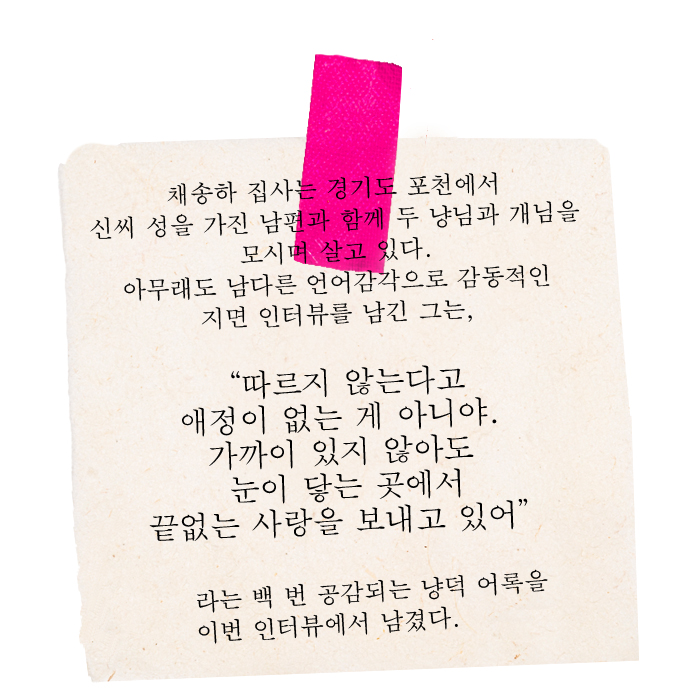 채송하 집사는 경기도 포천에서
신씨 성을 가진 남편과 함께 두 냥님과 개님을
모시며 살고 있다.
아무래도 남다른 언어감각으로 감동적인
지면 인터뷰를 남긴 그는,
“따르지 않는다고
애정이 없는 게 아니야.
가까이 있지 않아도
눈이 닿는 곳에서
끝없는 사랑을 보내고 있어”
라는 백 번 공감되는 냥덕 어록을
이번 인터뷰에서 남겼다.